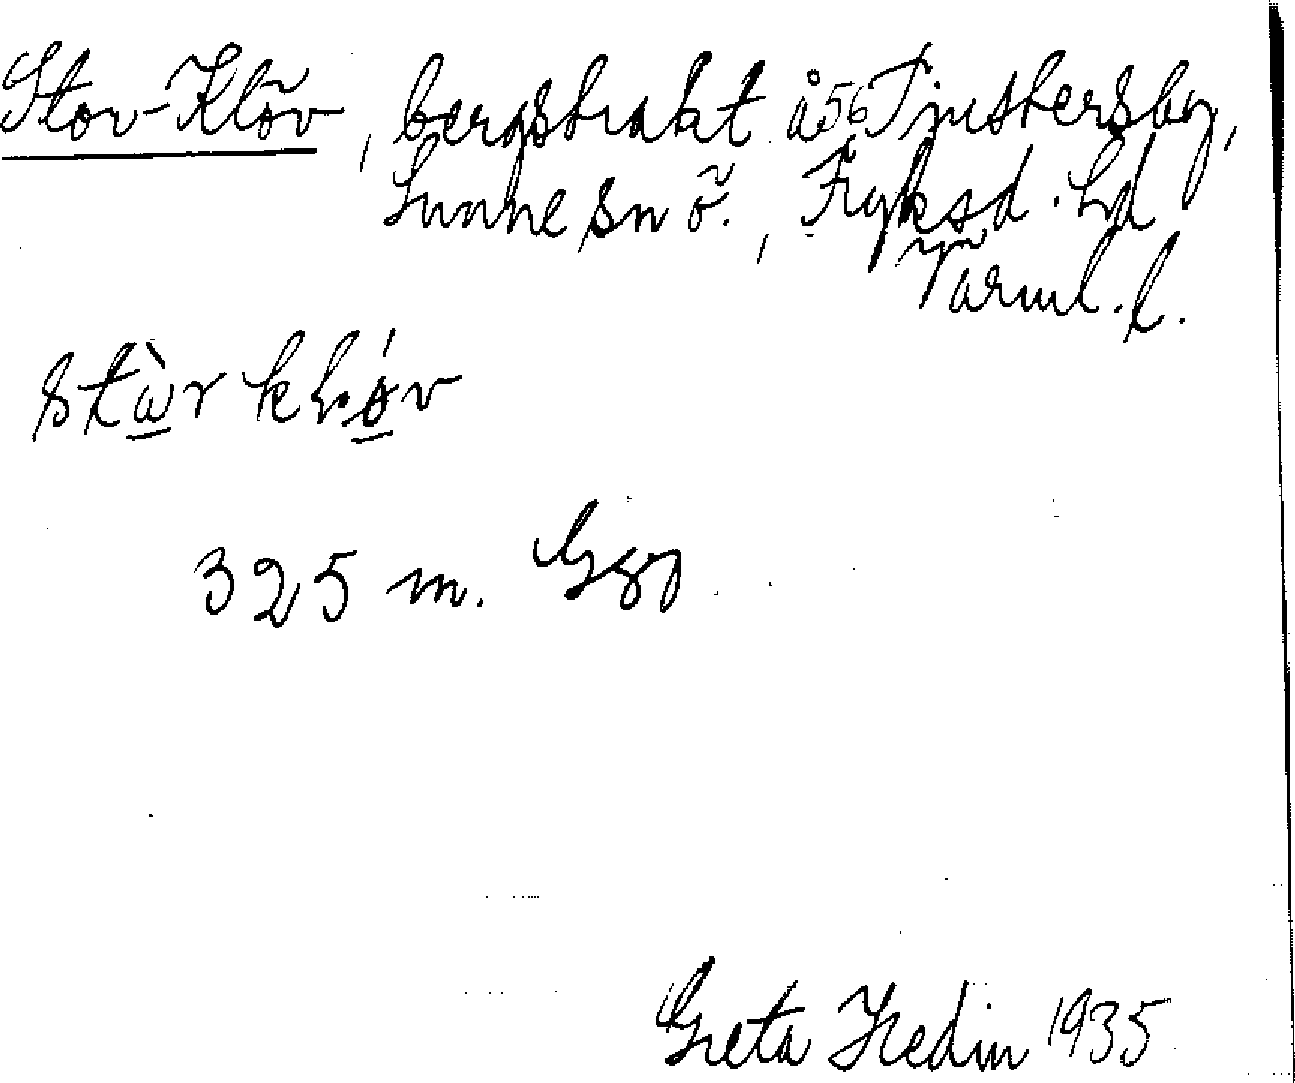 Stor-Klöv, bergstrakt å 56 Tjustersby,
Sunne sn ö., Fryksd. hd
Värml. l.
stὼr kḷǿv
325 m. Ggp
Greta Hedin 1935